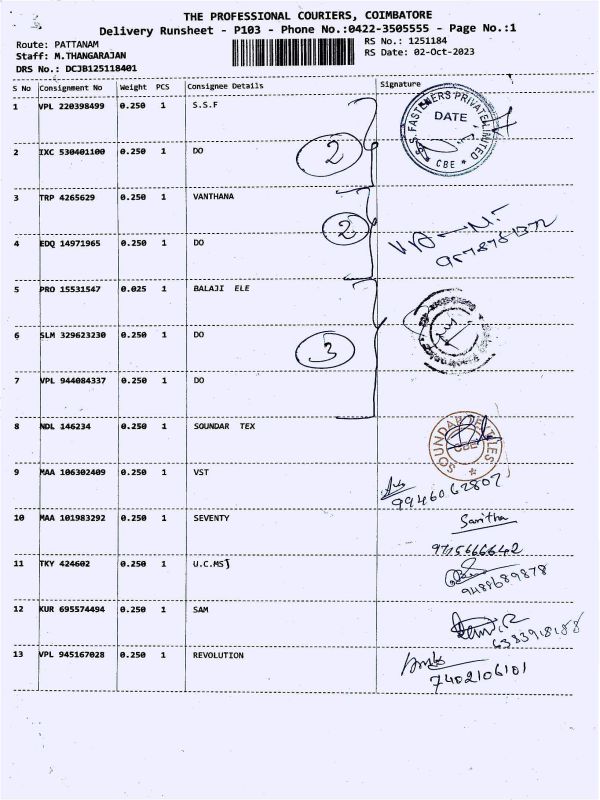 THE PROFESSIONAL COURIERS, COIMBATORE
Delivery Runsheet - P103 - Phone No.:0422-3505555 - Page No.:1
Route: PATTANAM
RS No.: 1251184
Staff: M.THANGARAJAN
RS Date: 02-Oct-2023
DRS No.: DCJB125118401
S No Consignment No Weight PCS Consignee Details Signature
1 VPL 220398499 0.250 1 S.S.F
S.S. FASTENERS PRIVATE LIMITED
DATE
CBE
2 IXC 530401100 0.250 1 DO
2
3 TRP 4265629 0.250 1 VANTHANA
2
4 EDQ 14971965 0.250 1 DO
5 PRO 15531547 0.025 1 BALAJI ELE
6 SLM 329623230 0.250 1 DO
3
7 VPL 944084337 0.250 1 DO
8 NDL 146234 0.250 1 SOUNDAR TEX
SOUNDAR TEXTILES
CBE
9 MAA 106302409 0.250 1 VST
9946062807
10 MAA 101983292 0.250 1 SEVENTY Saritha
9715666642
11 TKY 424602 0.250 1 U.C.MS
9488689878
12 KUR 695574494 0.250 1 SAM
6333918188
13 VPL 945167028 0.250 1 REVOLUTION
7402106101